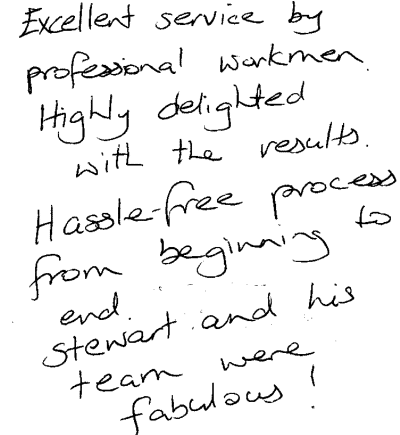 Excellent service by
professional workmen.
Highly delighted
with the results.
Hassle-free process
from beginning to
end.
Stewart and his
team were
fabulous!